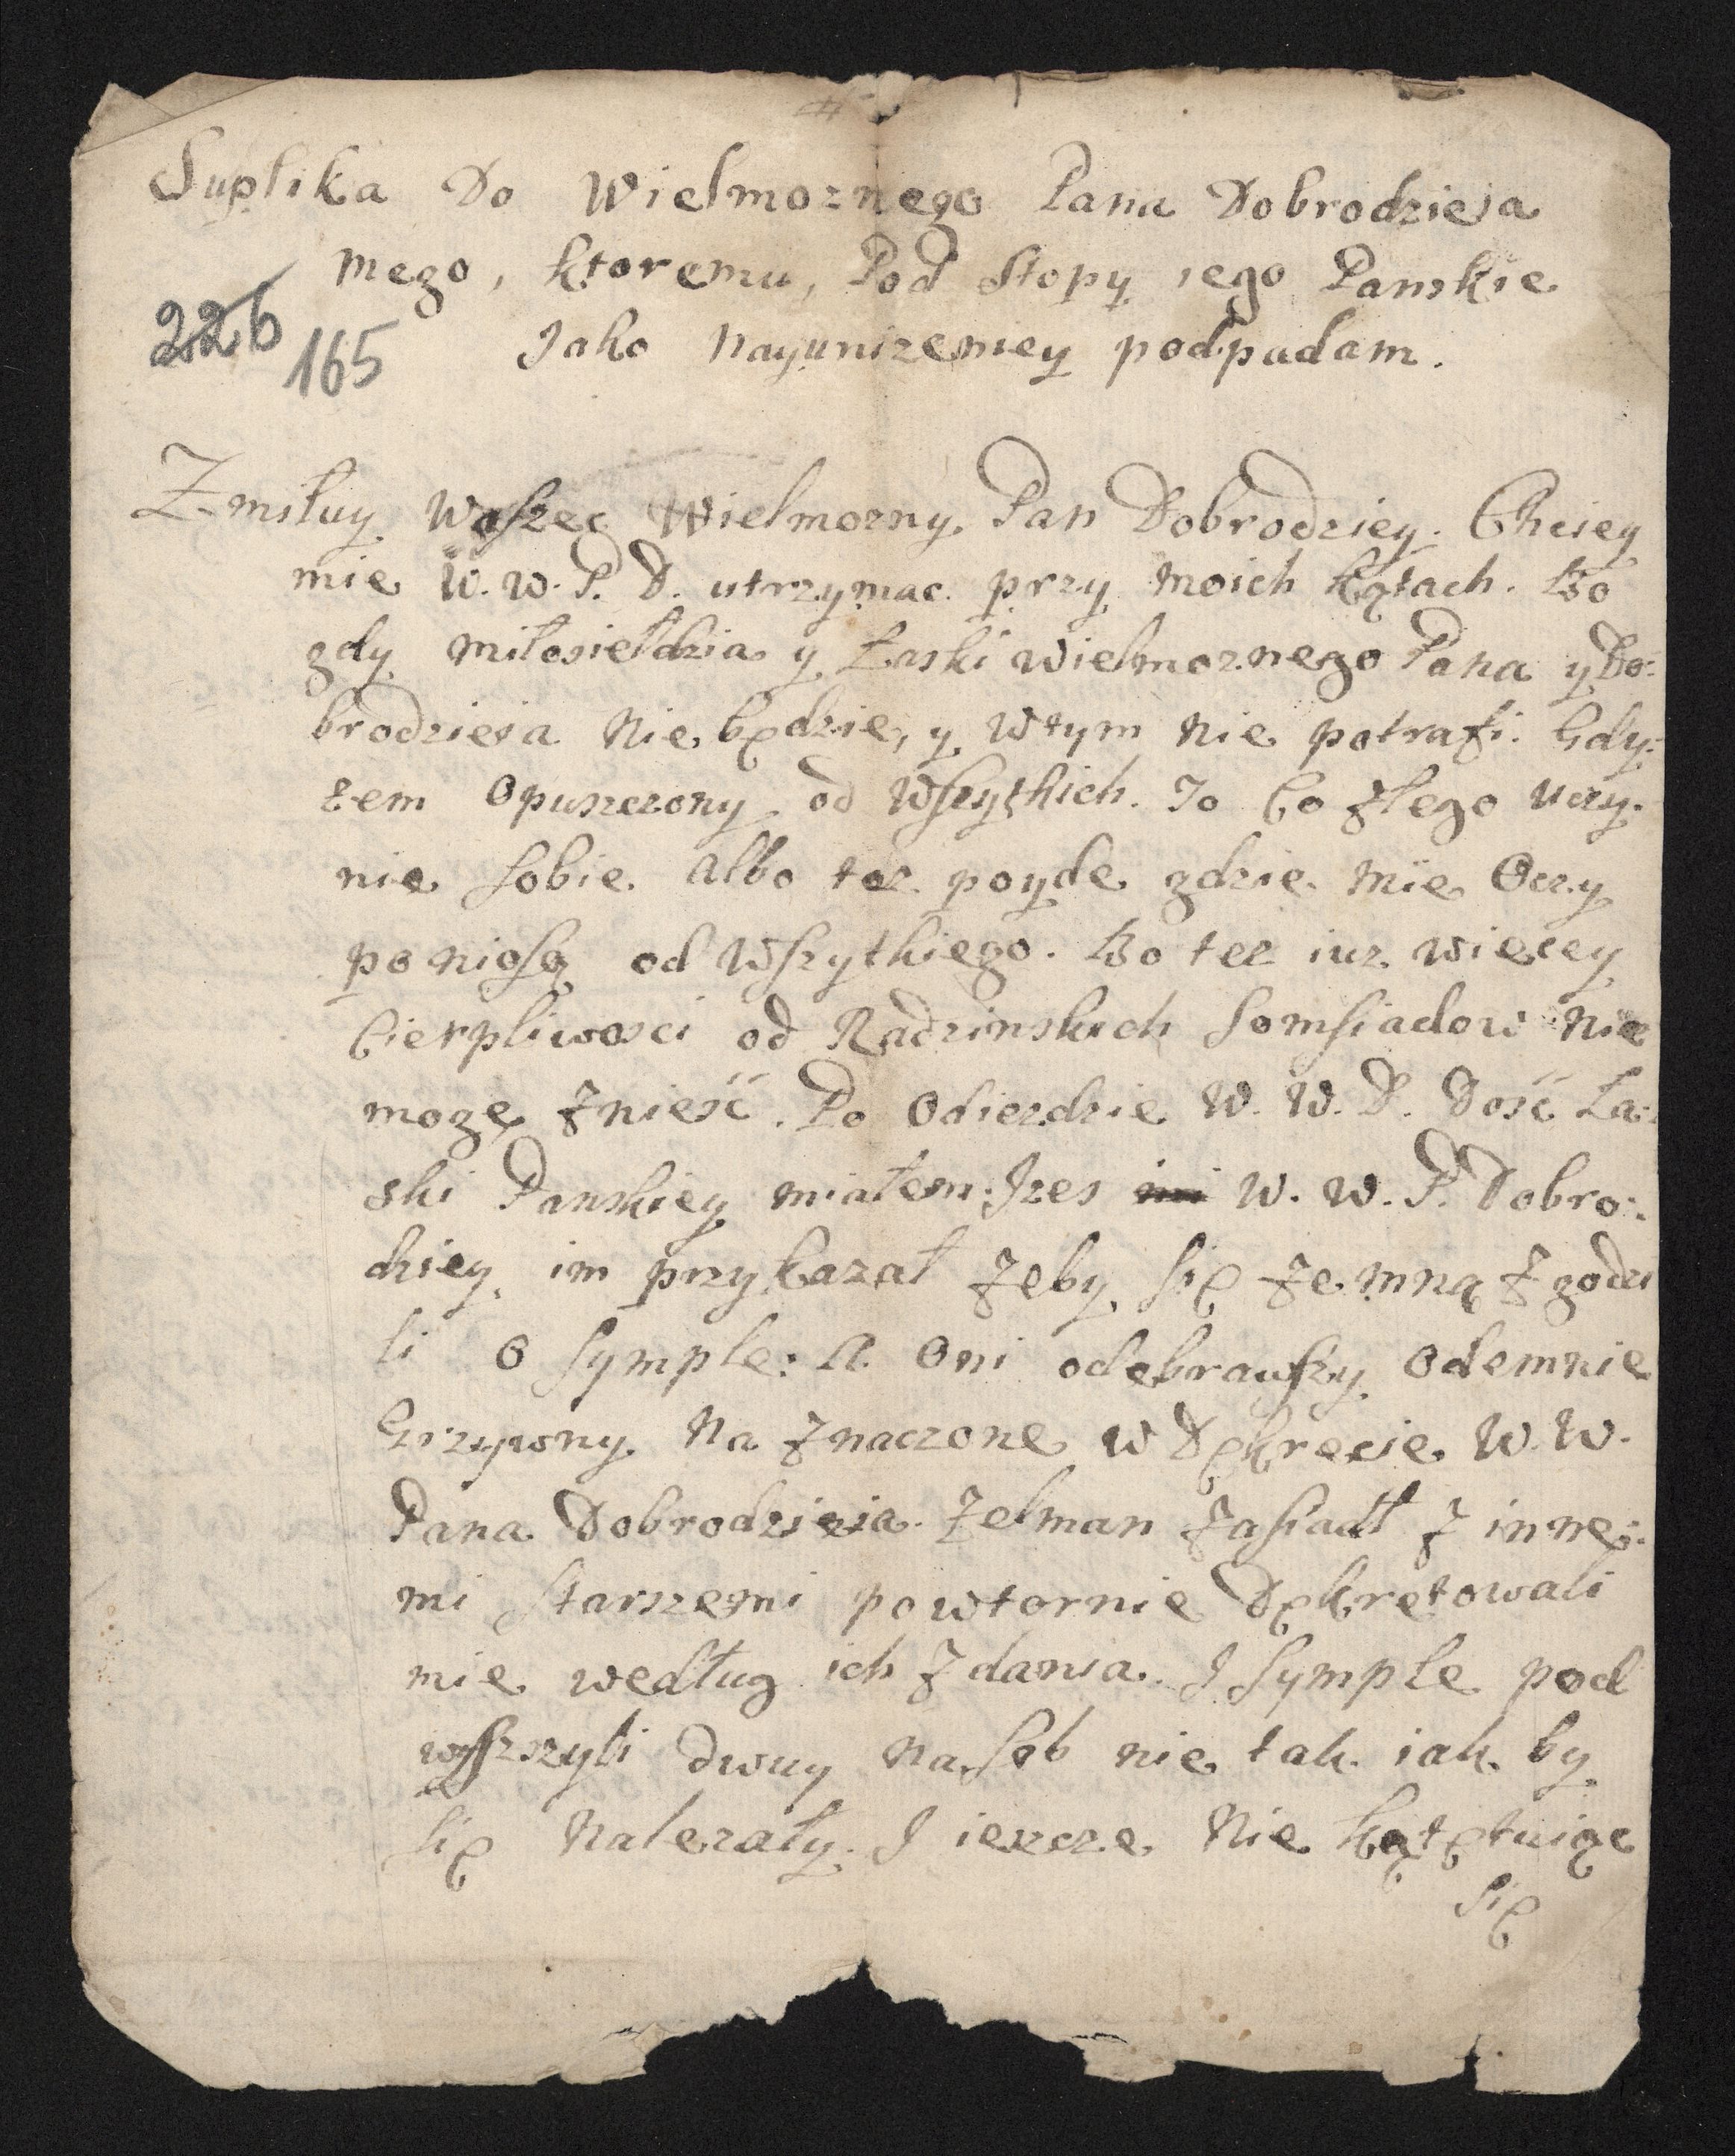 Suplika Do Wielmoznego Pana Dobrodzieia
mego, ktoremu, Pod Stopy iego Panskie
226 165 Jako nayunizeniey podpadam.
Zmiłuy Waszec Wielmozny Pan Dobrodziey. Chciey
mie W. W. P. D. utrzymac przy moich kątach. Bo
gdy miłosieldzia y Łaski wielmoznego Pana y Do:
brodzieia Nie będzie, y wtym nie potrafi. Gdy:
zem Opuszczony od Wszytkich. Jo Co złego uczy:
nie sobie. Albo tez poyde gdzie mïe Oczy
poniosą od Wszytkiego. Bo tez iuz wiecey
Cierpliwosci od Radzinskich Somsiadow nie
mogę znieść. Po Odiezdzie W. W. D. Dość Ła:
ski Panskiey miałem. Jzes W. W. P. Dobro:
dziey im przykazał zeby się ze mną zgodzi
li O Symple: A Oni odebrawszy Odemnie
Grzywny Na znaczone w Dękrecie W. W.
Pana Dobrodzieia. Zelman zasiadł z inne:
mi Starszemi powtornie Dękretowali
mie według ich zdania. J Symple pod
wyszszyli dwuy nasób nie tak iak by
się Nalezały. J ieszcze Nie kątętuiąc
się